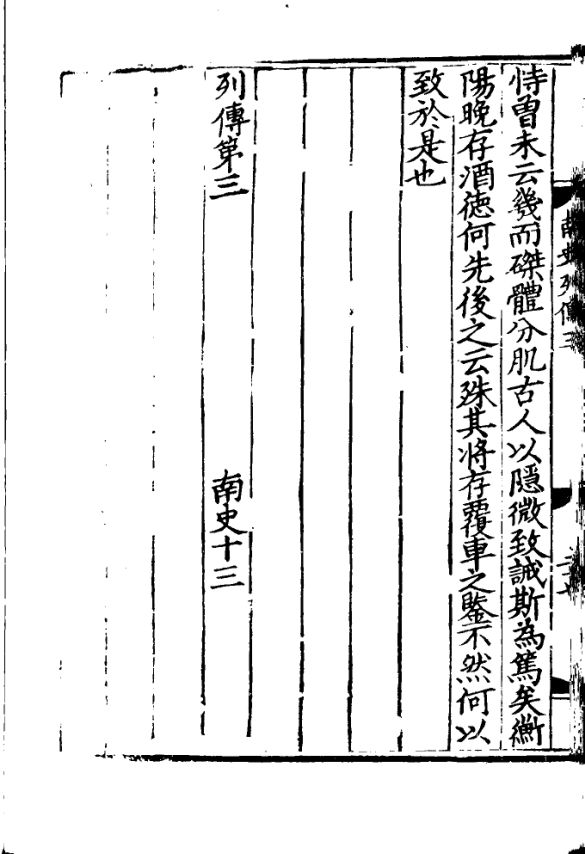 南史列傳三
恃曾未云幾而磔體分肌古人以隱微致誡斯為篤矣衡
陽晚存酒德何先後之云殊其將存覆車之鑒不然何以
致於是也
列傳第三 南史十三